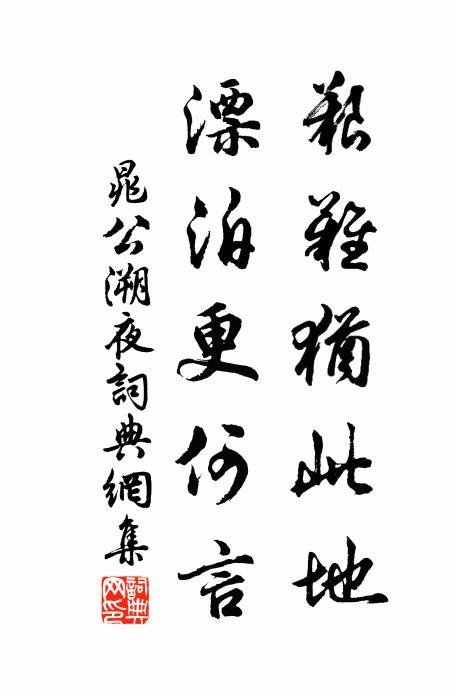 艱難猶此地
漂泊更何言
晁公溯夜詞典網集
詞典網印